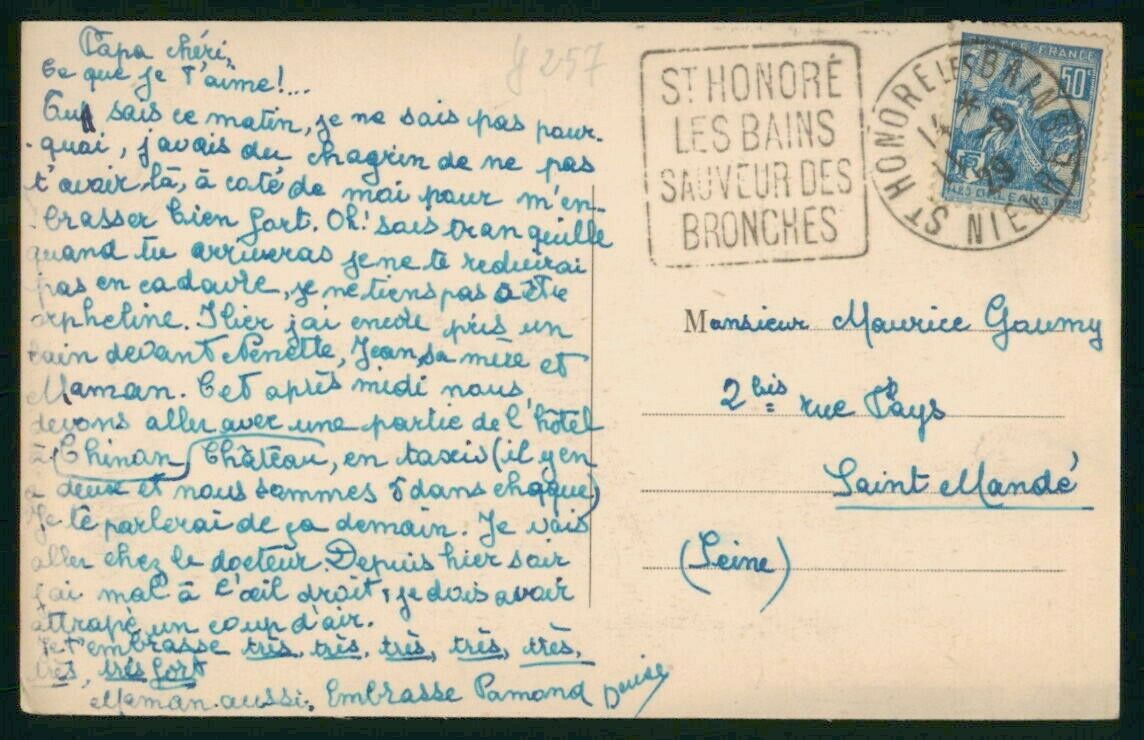 Papa chéri,
Ce que je t'aime!...
Tu sais ce matin, je ne sais pas pour-
quoi, j'avais du chagrin de ne pas
t'avoir là, à coté de moi pour m'em-
brasser bien fort. Oh! sois tranquille
quand tu arriveras je ne te réduirai
pas en cadavre, je ne tiens pas à être
orpheline. Hier j'ai encore pris un
bain devant Nenette, Jean, sa mère et
Maman. Cet après midi nous
devons aller avec une partie de l'hôtel
à Chinon Château, en taxis (il y en
a deux et nous sommes 5 dans chaque)
Je te parlerai de ça demain. Je vais
aller chez le docteur. Depuis hier soir
j'ai mal à l'œil droit, je dois avoir
attrapé un coup d'air.
Je t'embrasse très, très, très, très, très,
très, très fort
Maman aussi. Embrasse Pamond Denise
y 257
ST HONORÉ
LES BAINS
SAUVEUR DES
BRONCHES
ST HONORE LES BAINS NIEVRE
FRANCE
50c
ORLEANS
Monsieur Maurice Gaumy
2 bis rue Pays
Saint Mandé
(Seine)